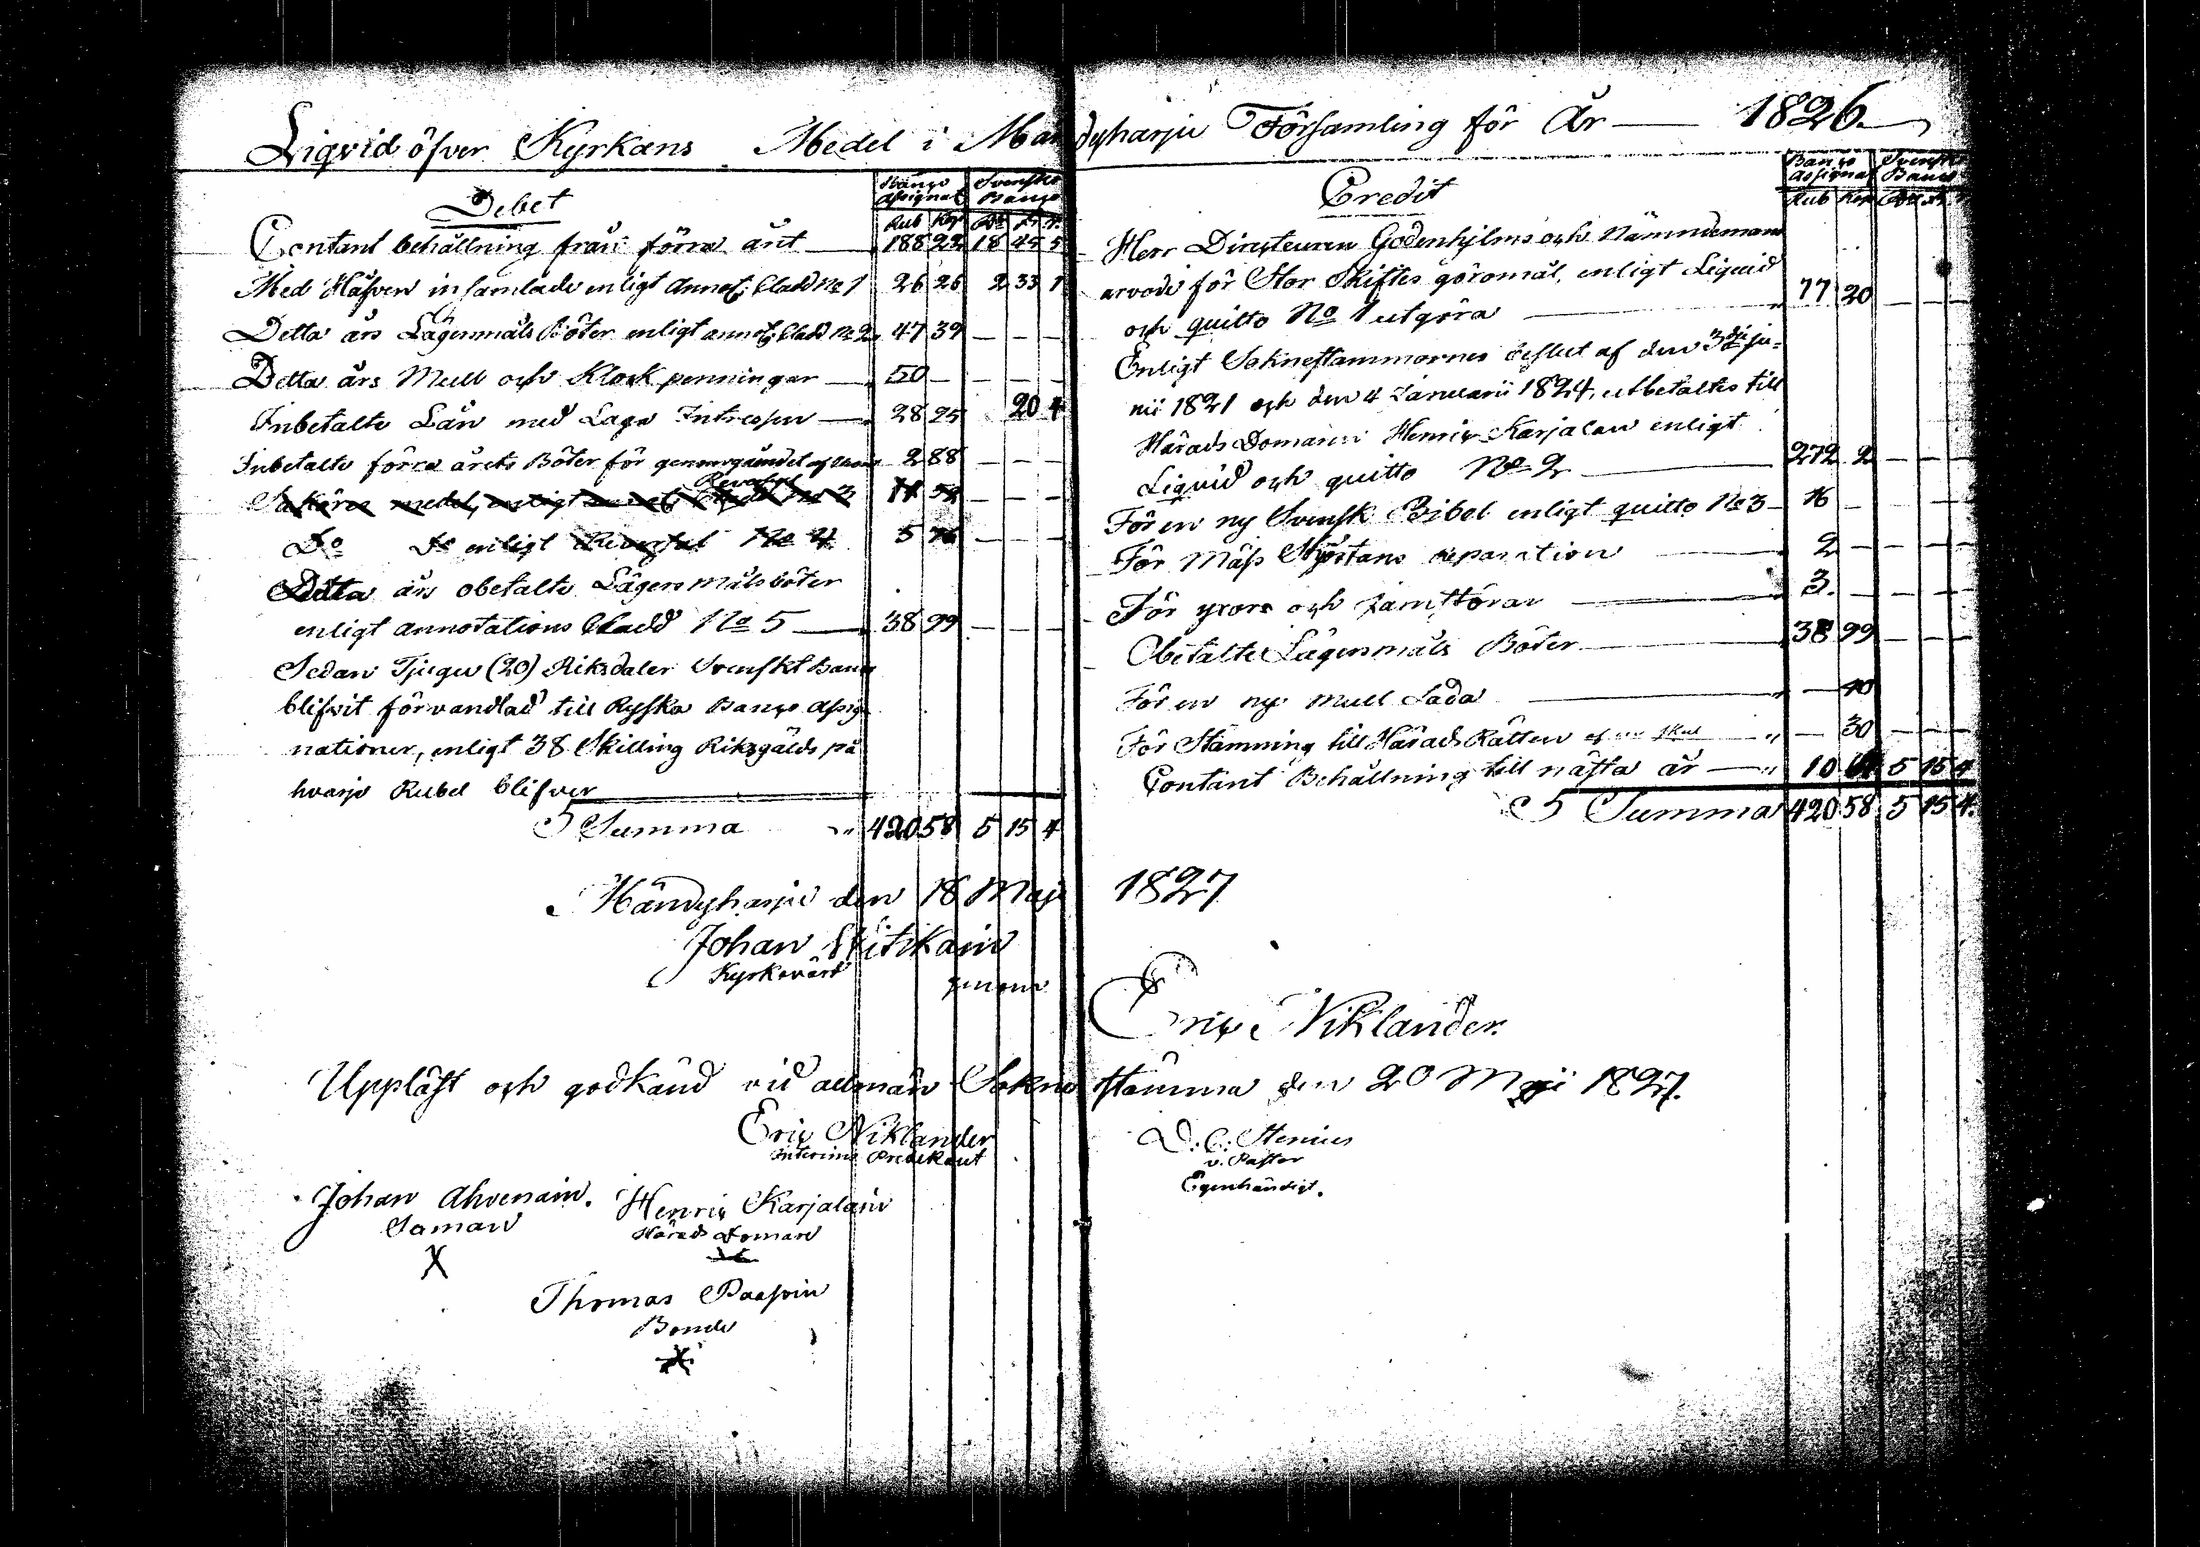 Liqvid öfver Kyrkans Medel i Mändyharju Församling för År — 1826.
Debet
Banco Assignat Svenske Banco
Rub Kop Rd s. r.
Contant behållning från förra året 188 22 18 45 5
Med Håfven insamlade enligt Annot: bladd No 1 26 26 2 33 1
Detta års Lägersmåls Böter enligt annot: bladd No 2 47 39 — — —
Detta års Mull och Klock penningar 50 — — — —
Inbetalte Lån med Laga Intressen 28 25 20 4
Inbetalte förra årets Böter för 2 88 — — —
Reversal
Sakören medel, enligt No 3 11 52 — — —
Do Do enligt Reversal No 4 5 76 — — —
Detta års obetalte Lägersmåls böter
enligt annotations bladd No 5 38 99 — — —
Sedan Tjugu (20) Riksdaler Svenskt Banco
blifvit förvandlad till Ryska Banco Assig
nationer, enligt 38 Skilling Riksgälds på
hvarje Rubel blifver
Summa 420 58 5 15 4
Credit
Banco Assignat Svenske Banco
Rub Kop Rd s. r.
Herr Directeuren Godenhjelms och Nämndemans
arvode för Stor Skiftes göromål, enligt Liquid
och quitto No 1 utgöra 77 20 — — —
Enligt Soknestämmornes beslut af den 3die ju-
nii 1821 och den 4 Januarii 1824, utbetaltes till
Härads Domaren Henric Karjalain enligt
Liquid och quitto No 2 272 2 — — —
För en ny Svensk Bibel enligt quitto No 3 16 — — — —
För Mäss Skjortans reparation 2 — — — —
För 3. — — — —
Obetalte Lägersmåls Böter 38 99 — — —
För en ny Mull Lada — 40
För Stämning till Härads Rätten — 30 — — —
Contant Behållning till nästa år 10 5 15 4
Summa 420 58 5 15 4.
Mändyharju den 18 Maji 1827
Johan
Kyrkovärd
genom
Eric Niklander.
Uppläst och godkänd vid allmän Sokne stämma den 20 Maji 1827.
Eric Niklander
Interims Predikant
D. C. Stenius
v. Pastor
Egenhändigt.
Johan Ahvenain.
X
Henric Karjalain
Härads Doman
Thomas Paasoin
Bonde